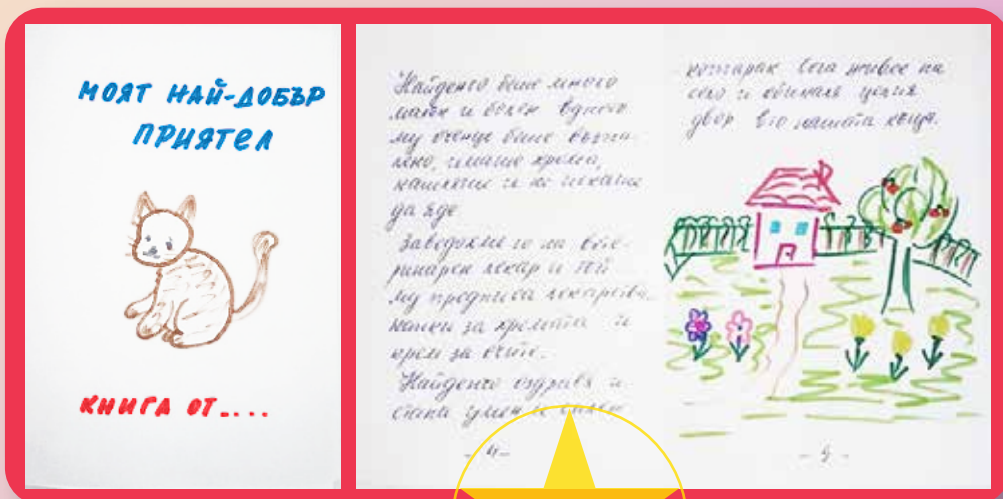 МОЯТ НАЙ-ДОБЪР
ПРИЯТЕЛ
КНИГА ОТ....
Найденчо беше много
малък и болен. Едното
му оченце беше възпа-
лено, имаше хрема,
кашляше и не искаше
да яде
Заведохме го на вете-
ринарен лекар и той
му предписа лекарства
капки за хремата и
крем за очите.
Найденчо оздравя и
стана умен и
- 4 -
котарак. Сега живее на
село и обикаля целия
двор в нашата къща.
- 5 -